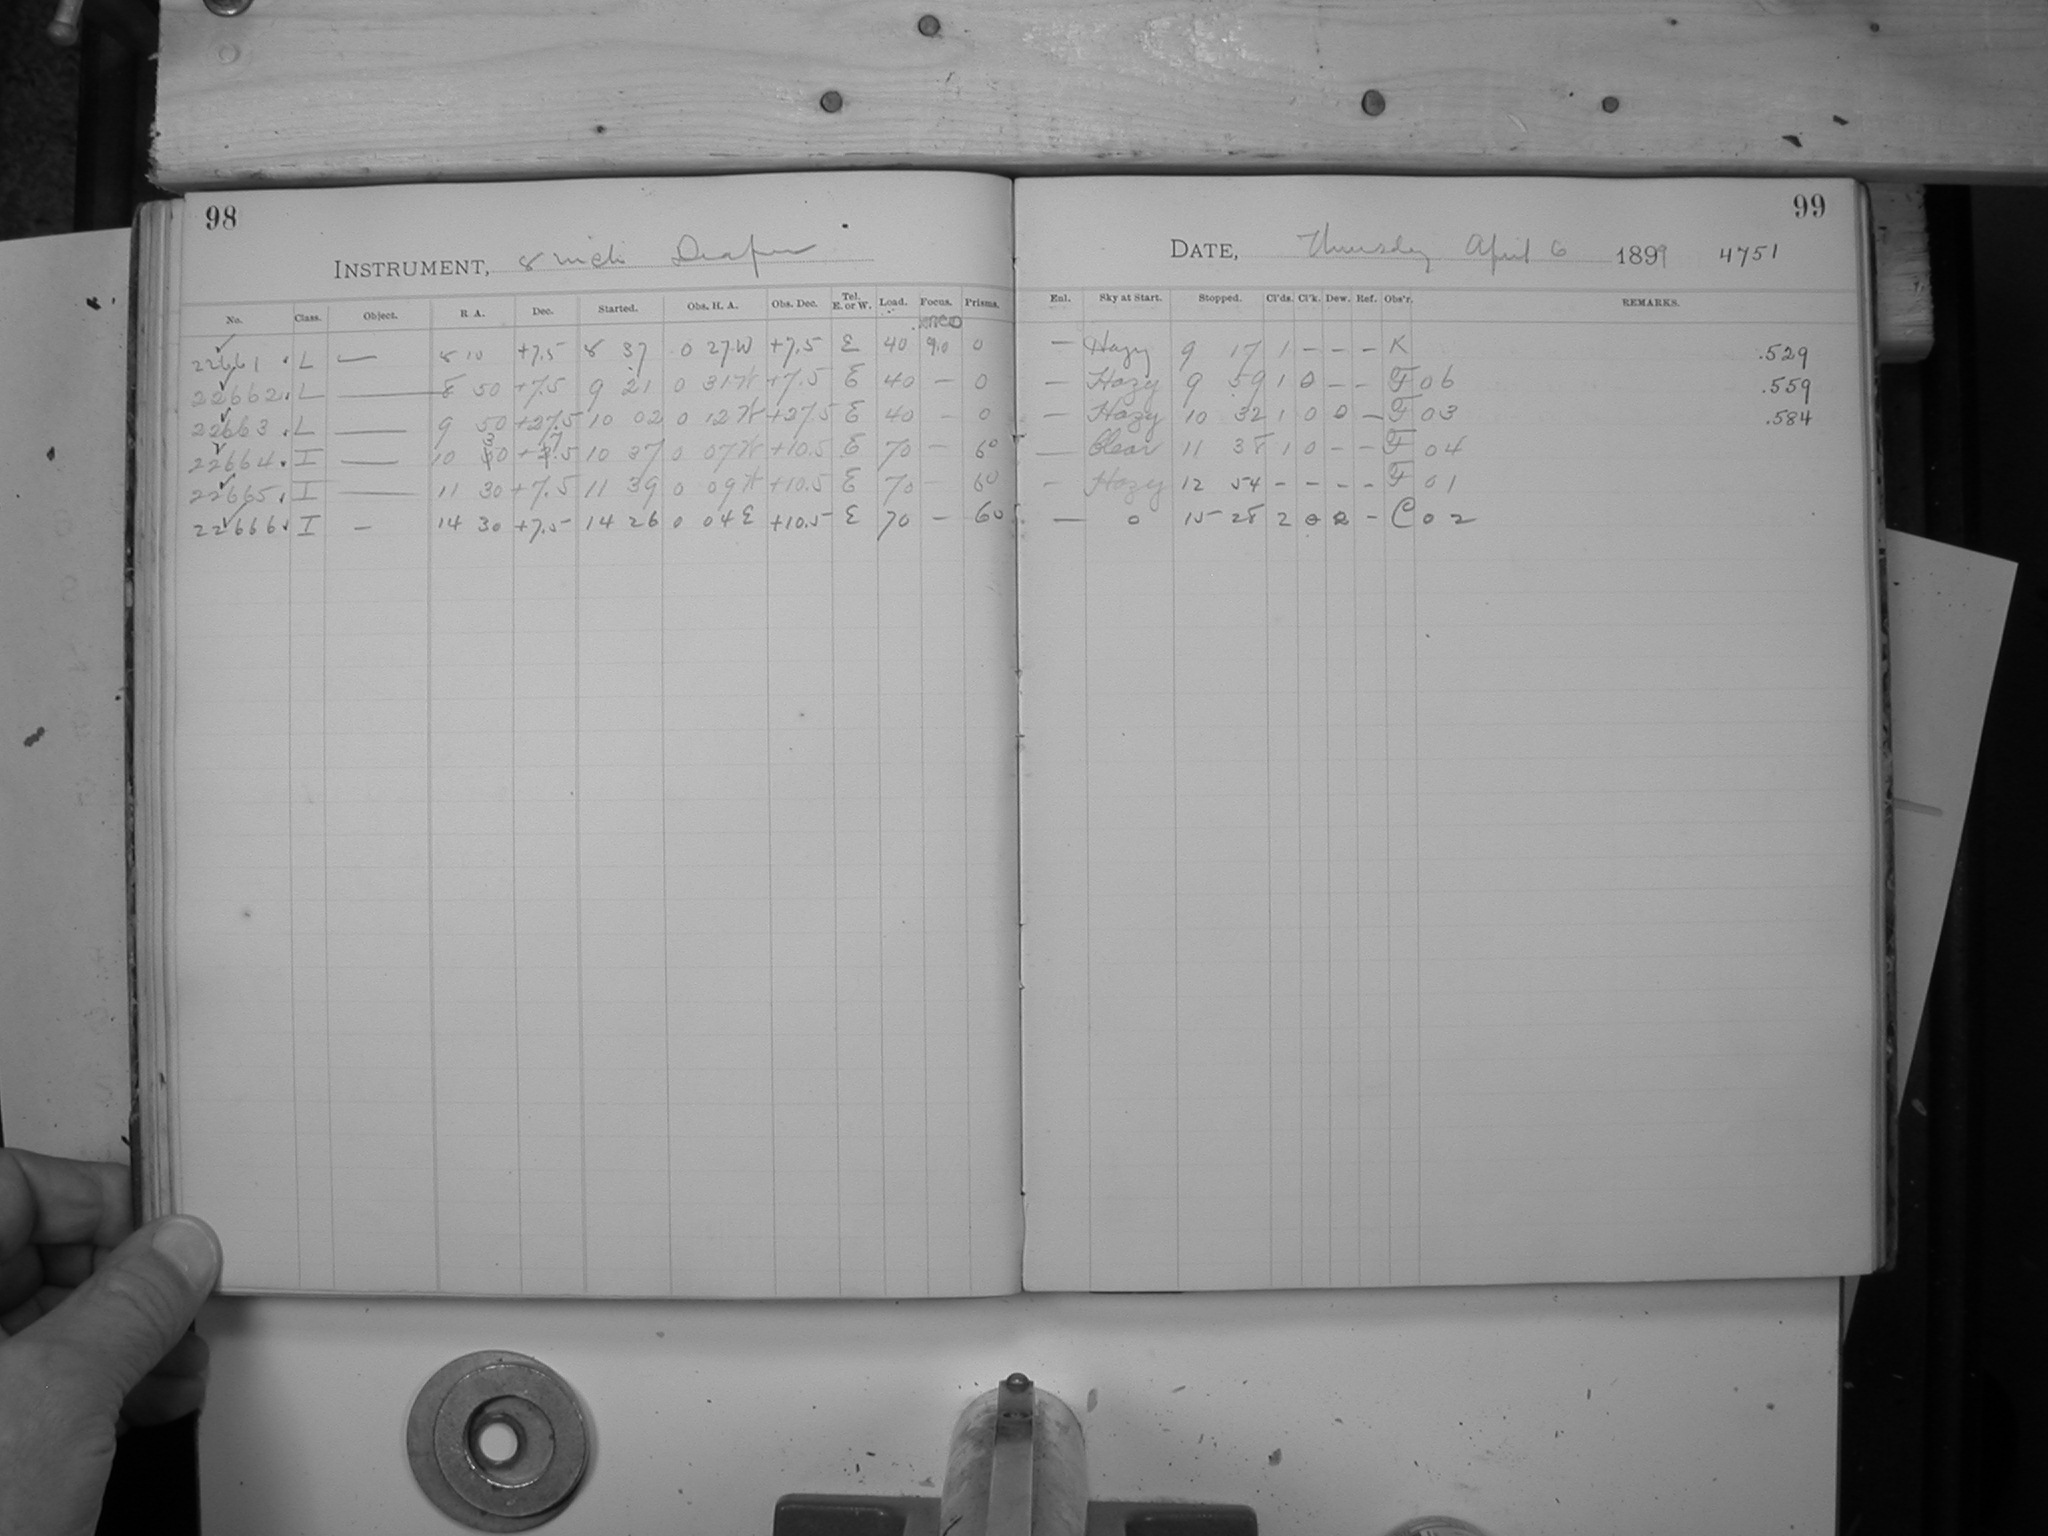 98
INSTRUMENT, 8 inch Draper
No. Class. Object. R A. Dec. Started. Obs. H. A. Obs. Dec. Tel. E. or W. Load. Focus. Prisms.
22661 . L — 8 10 +7.5 8 37 0 27 W +7.5 E 40 9.0 0
22662 . L — 8 50 +7.5 9 21 0 31 W +7.5 E 40 — 0
22663 . L — 9 50 +27.5 10 02 0 12 W +27.5 E 40 — 0
22664 . I — 10 30 +7.5 10 37 0 07 W +10.5 E 70 — 60
22665 . I — 11 30 +7.5 11 39 0 09 W +10.5 E 70 — 60
22666 . I — 14 30 +7.5 14 26 0 04 E +10.5 E 70 — 60
99
DATE, Thursday April 6 1899 4751
Enl. Sky at Start. Stopped. Cl'ds. Cl'k. Dew. Ref. Obs'r. REMARKS.
— Hazy 9 17 1 – – – K .529
— Hazy 9 59 1 0 – – F 06 .559
— Hazy 10 32 1 0 0 – F 03 .584
— Clear 11 38 1 0 – – F 04
– Hazy 12 54 – – – – F 01
— 0 15 28 2 0 2 – C 02